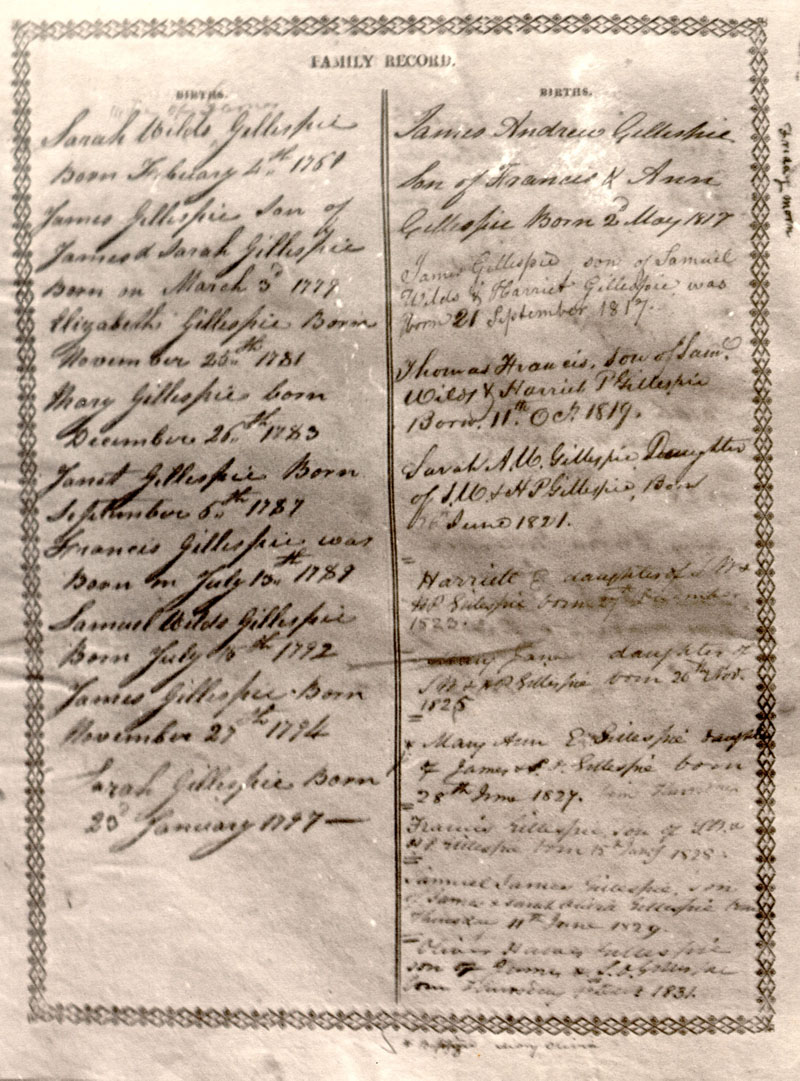 FAMILY RECORD.
BIRTHS.
wife of James
Sarah Wilds Gillespie
Born February 4th 1761
James Gillespie Son of
James & Sarah Gillespie
Born on March 3d 1779
Elizabeth Gillespie Born
November 25th 1781
Mary Gillespie born
December 26th 1783
Janet Gillespie Born
September 6th 1787
Francis Gillespie was
Born on July 13th 1789
Samuel Wilds Gillespie
Born July 15th 1792
James Gillespie Born
November 27th 1794
Sarah Gillespie Born
23d January 1797 —
BIRTHS.
James Andrew Gillespie
Son of Francis & Ann
Gillespie Born 2d May 1817
James Gillespie son of Samuel
Wilds & Harriet Gillespie was
born 21 September 1817.
Thomas Francis, son of Saml.
Wilds & Harriet P Gillespie
Born 11th Oct. 1819.
Sarah A.W. Gillespie Daughter
of S.W & H P Gillespie, Born
June 1821.
Harriett E daughter of S W &
H P Gillespie born 27th December
1823.
Mary Jane daughter of
S W & H P Gillespie born 26th Nov.
1825
Mary Ann E. Gillespie daughter
of James & S. O. Gillespie born
28th June 1827.
Francis Gillespie, son of S W &
H P Gillespie born 15th Jany 1828.
Samuel James Gillespie, son
of James & Sarah Olivia Gillespie born
Thursday 11th June 1829.
Oliver Hawes Gillespie
son of James & S. O. Gillespie
born Thursday 1831.
Friday morn
Mary Olivia